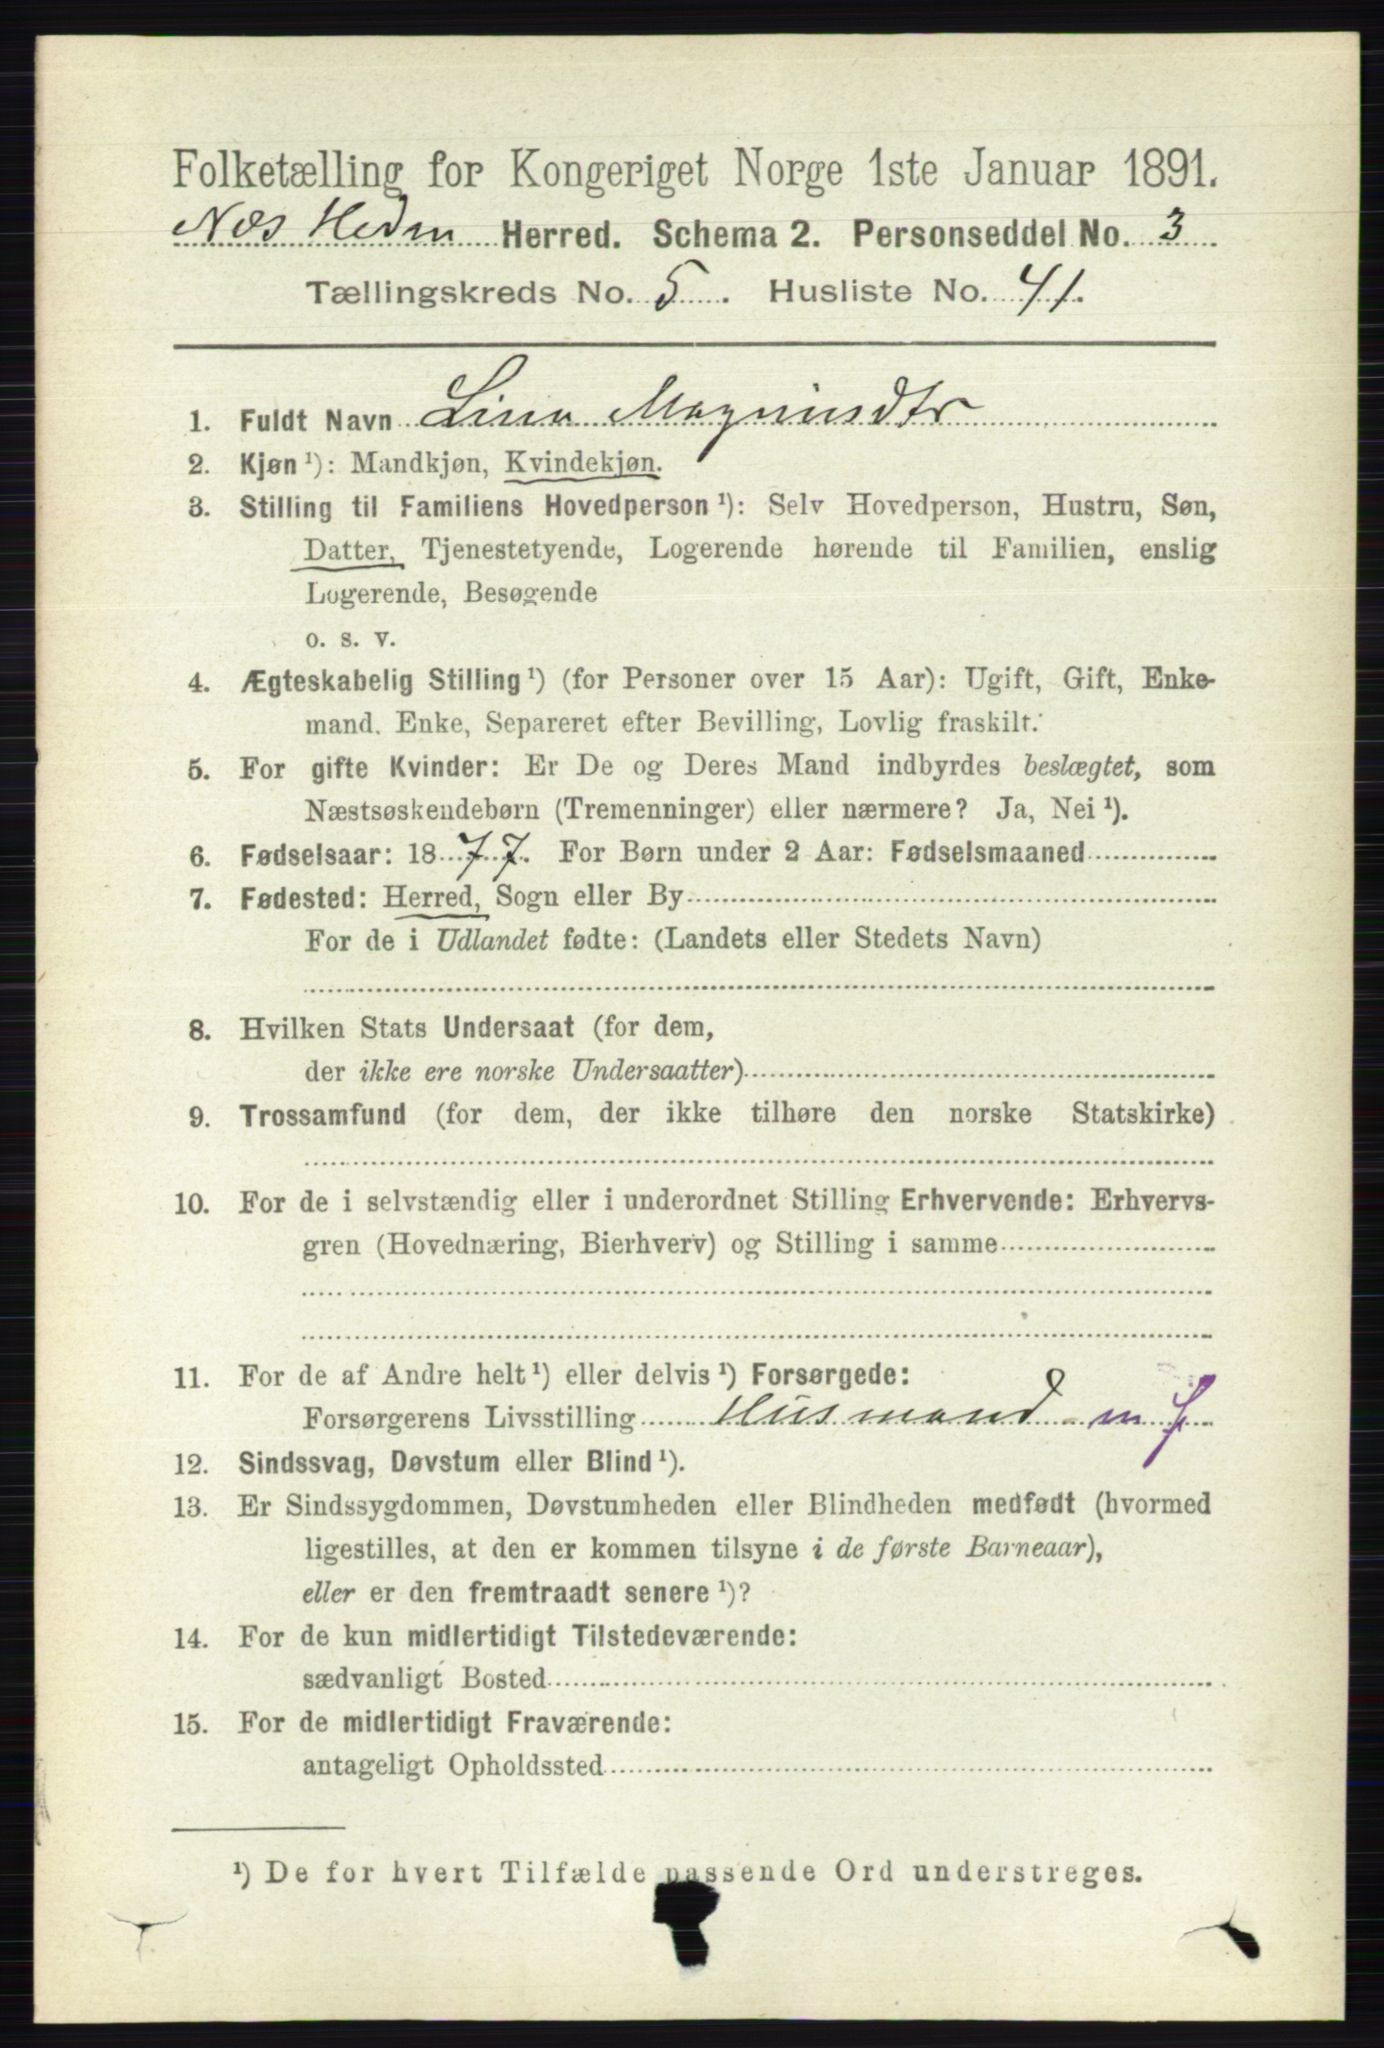 Folketælling for Kongeriget Norge 1ste Januar 1891.
Næs Hedm Herred. Schema 2. Personseddel No. 3
Tællingskreds No. 5. Husliste No. 41.
1. Fuldt Navn Lina Magnusdtr
2. Kjøn ¹): Mandkjøn, Kvindekjøn.
3. Stilling til Familiens Hovedperson ¹): Selv Hovedperson, Hustru, Søn,
Datter, Tjenestetyende, Logerende hørende til Familien, enslig
Logerende, Besøgende
o. s. v.
4. Ægteskabelig Stilling ¹) (for Personer over 15 Aar): Ugift, Gift, Enke-
mand, Enke, Separeret efter Bevilling, Lovlig fraskilt.
5. For gifte Kvinder: Er De og Deres Mand indbyrdes beslægtet, som
Næstsøskendebørn (Tremenninger) eller nærmere? Ja, Nei ¹).
6. Fødselsaar: 1877. For Børn under 2 Aar: Fødselsmaaned
7. Fødested: Herred, Sogn eller By
For de i Udlandet fødte: (Landets eller Stedets Navn)
8. Hvilken Stats Undersaat (for dem,
der ikke ere norske Undersaatter)
9. Trossamfund (for dem, der ikke tilhøre den norske Statskirke)
10. For de i selvstændig eller i underordnet Stilling Erhvervende: Erhvervs-
gren (Hovednæring, Bierhverv) og Stilling i samme
11. For de af Andre helt ¹) eller delvis ¹) Forsørgede:
Forsørgerens Livsstilling Husmand m J
12. Sindssvag, Døvstum eller Blind ¹).
13. Er Sindssygdommen, Døvstumheden eller Blindheden medfødt (hvormed
ligestilles, at den er kommen tilsyne i de første Barneaar),
eller er den fremtraadt senere ¹)?
14. For de kun midlertidigt Tilstedeværende:
sædvanligt Bosted
15. For de midlertidigt Fraværende:
antageligt Opholdssted
¹) De for hvert Tilfælde passende Ord understreges.